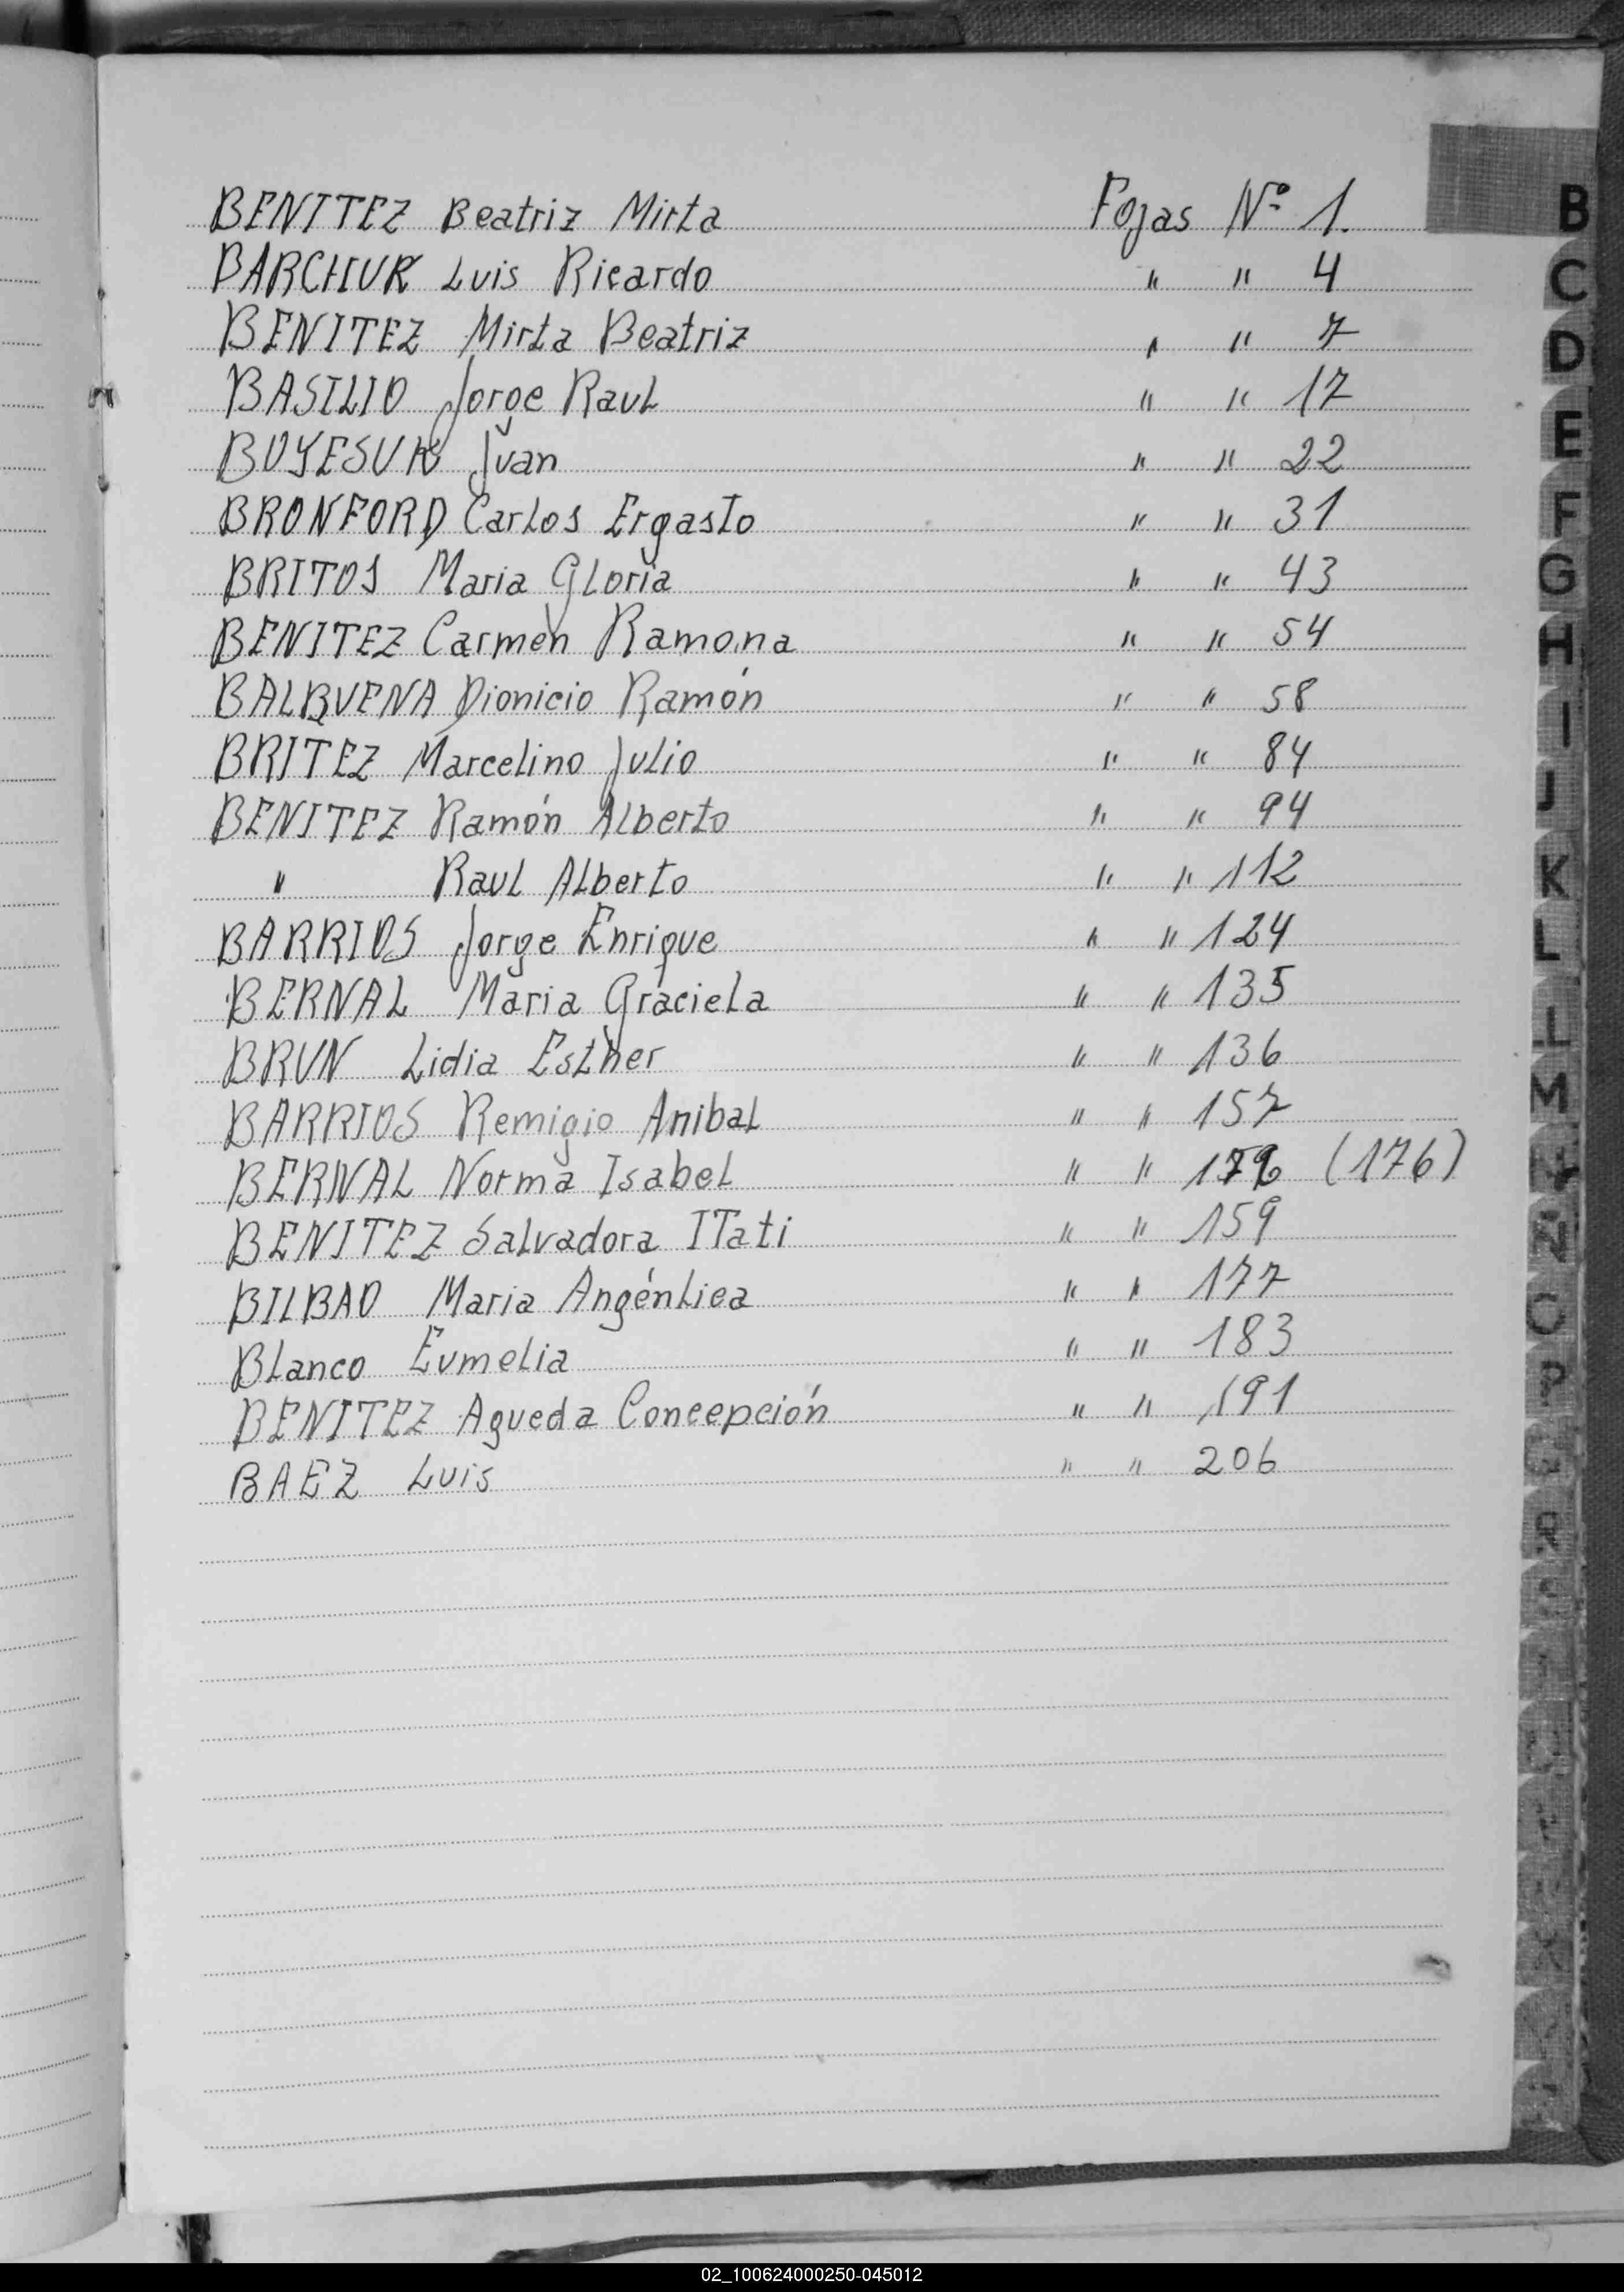 BENITEZ Beatriz Mirta Fojas Nº 1.
BARCHUK Luis Ricardo " " 4
BENITEZ Mirta Beatriz " " 7
BASILIO Jorge Raul " " 17
BOYESUK Juan " " 22
BRONFORD Carlos Ergasto " " 31
BRITOS Maria Gloria " " 43
BENITEZ Carmen Ramona " " 54
BALBUENA Dionicio Ramón " " 58
BRITEZ Marcelino Julio " " 84
BENITEZ Ramón Alberto " " 94
" Raul Alberto " " 112
BARRIOS Jorge Enrique " " 124
BERNAL Maria Graciela " " 135
BRUN Lidia Esther " " 136
BARRIOS Remigio Anibal " " 157
BERNAL Norma Isabel " " (176)
BENITEZ Salvadora ITati " " 159
BILBAO Maria Angénlica " " 177
Blanco Eumelia " " 183
BENITEZ Agueda Concepción " " 191
BAEZ Luis " " 206
B
C
D
E
F
G
H
I
J
K
L
L
M
N
Ñ
O
P
R
02_100624000250-045012